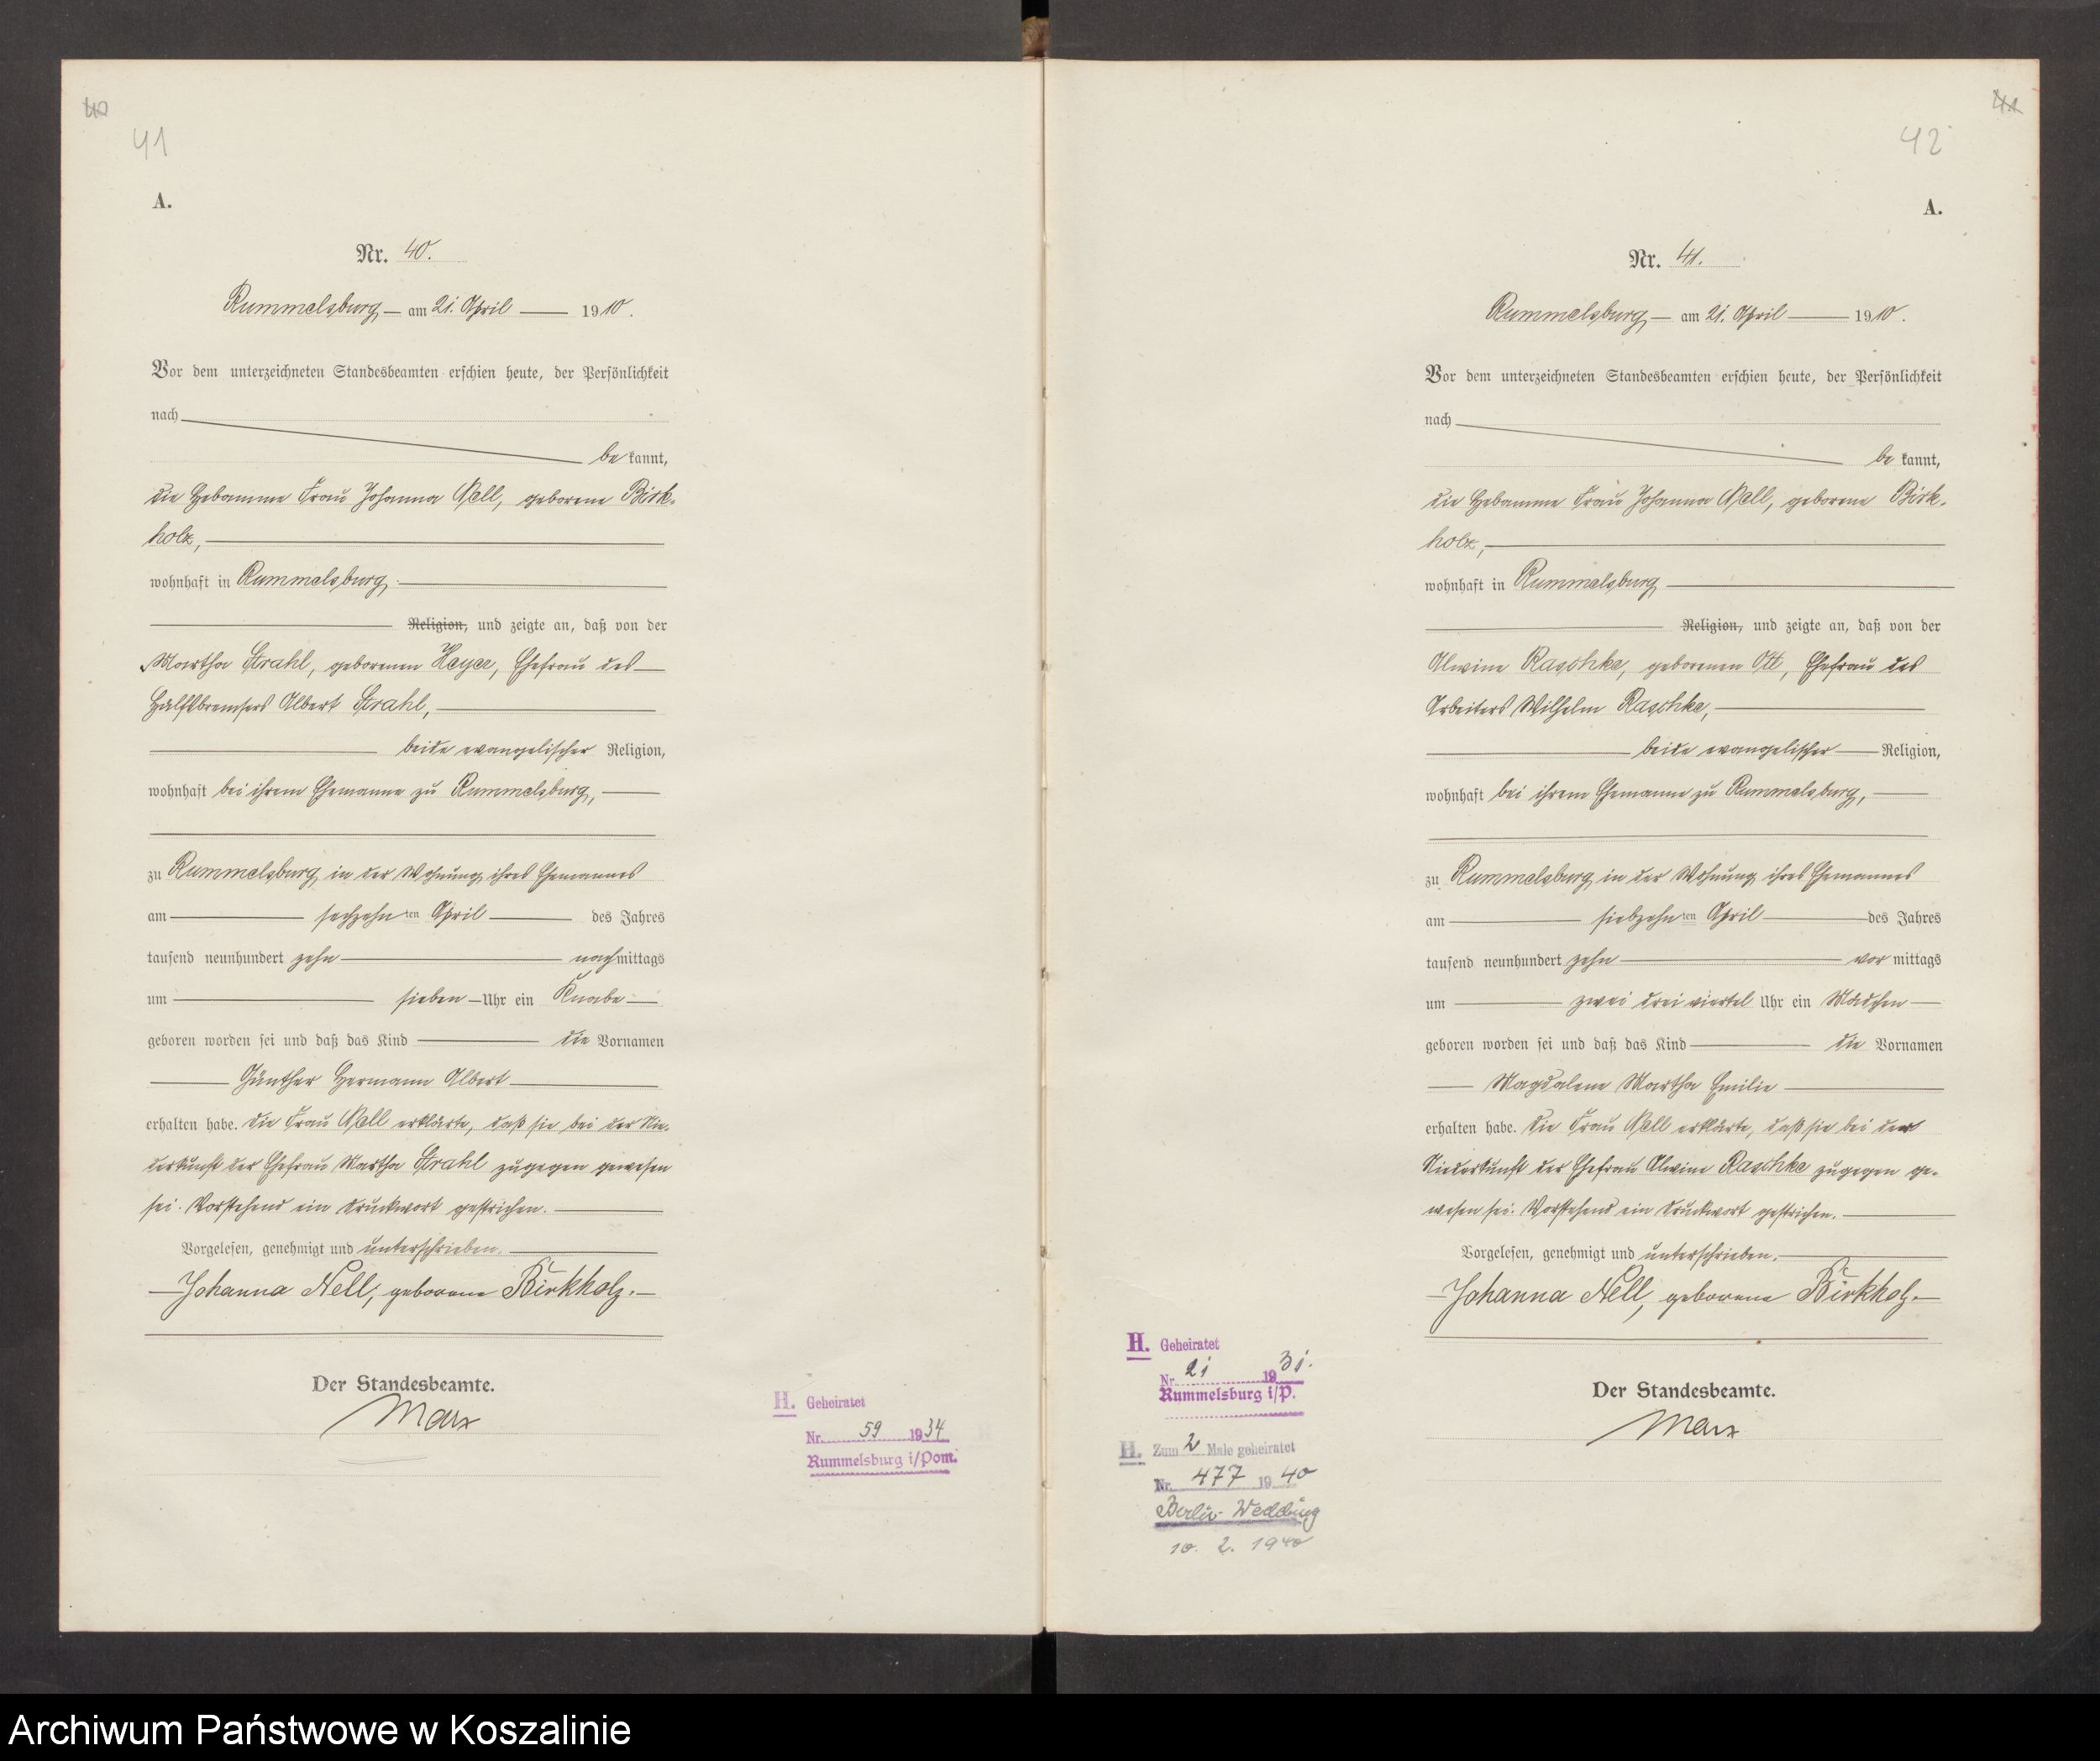 40
41
A.
Nr. 40.
Rummelsburg am 21. April 1910.
Vor dem unterzeichneten Standesbeamten erschien heute, der Persönlichkeit
nach
be kannt,
die Hebamme Frau Johanna Nell, geborene Birk-
holz,
wohnhaft in Rummelsburg
Religion, und zeigte an, daß von der
Martha Strahl, geborenen Heyer, Ehefrau des
Hülfsbremsers Albert Strahl,
beide evangelischer Religion,
wohnhaft bei ihrem Ehemanne zu Rummelsburg,
zu Rummelsburg in der Wohnung ihres Ehemannes
am sechzehn ten April des Jahres
tausend neunhundert zehn nachmittags
um sieben Uhr ein Knabe
geboren worden sei und daß das Kind die Vornamen
Günther Hermann Albert
erhalten habe. Die Frau Nell erklärte, daß sie bei der Nie-
derkunft der Ehefrau Martha Strahl zugegen gewesen
sei. Vorstehend ein Druckwort gestrichen.
Vorgelesen, genehmigt und unterschrieben.
Johanna Nell, geborene Birkholz.
Der Standesbeamte.
Marx
H. Geheiratet
Nr. 59 1934
Rummelsburg i/Pom.
41
42
A.
Nr. 41.
Rummelsburg am 21. April 1910.
Vor dem unterzeichneten Standesbeamten erschien heute, der Persönlichkeit
nach
be kannt,
die Hebamme Frau Johanna Nell, geborene Birk-
holz,
wohnhaft in Rummelsburg
Religion, und zeigte an, daß von der
Alwine Raschke, geborenen Ott, Ehefrau des
Arbeiters Wilhelm Raschke,
beide evangelischer Religion,
wohnhaft bei ihrem Ehemanne zu Rummelsburg,
zu Rummelsburg in der Wohnung ihres Ehemannes
am siebzehn ten April des Jahres
tausend neunhundert zehn vor mittags
um zwei drei viertel Uhr ein Mädchen
geboren worden sei und daß das Kind die Vornamen
Magdalene Martha Emilie
erhalten habe. Die Frau Nell erklärte, daß sie bei der
Niederkunft der Ehefrau Alwine Raschke zugegen ge-
wesen sei. Vorstehend ein Druckwort gestrichen.
Vorgelesen, genehmigt und unterschrieben.
Johanna Nell, geborene Birkholz.
Der Standesbeamte.
Marx
H. Geheiratet
Nr. 21 1931.
Rummelsburg i/P.
H. Zum 2 Male geheiratet
Nr. 477 1940
Berlin-Wedding
10. 2. 1940
Archiwum Państwowe w Koszalinie